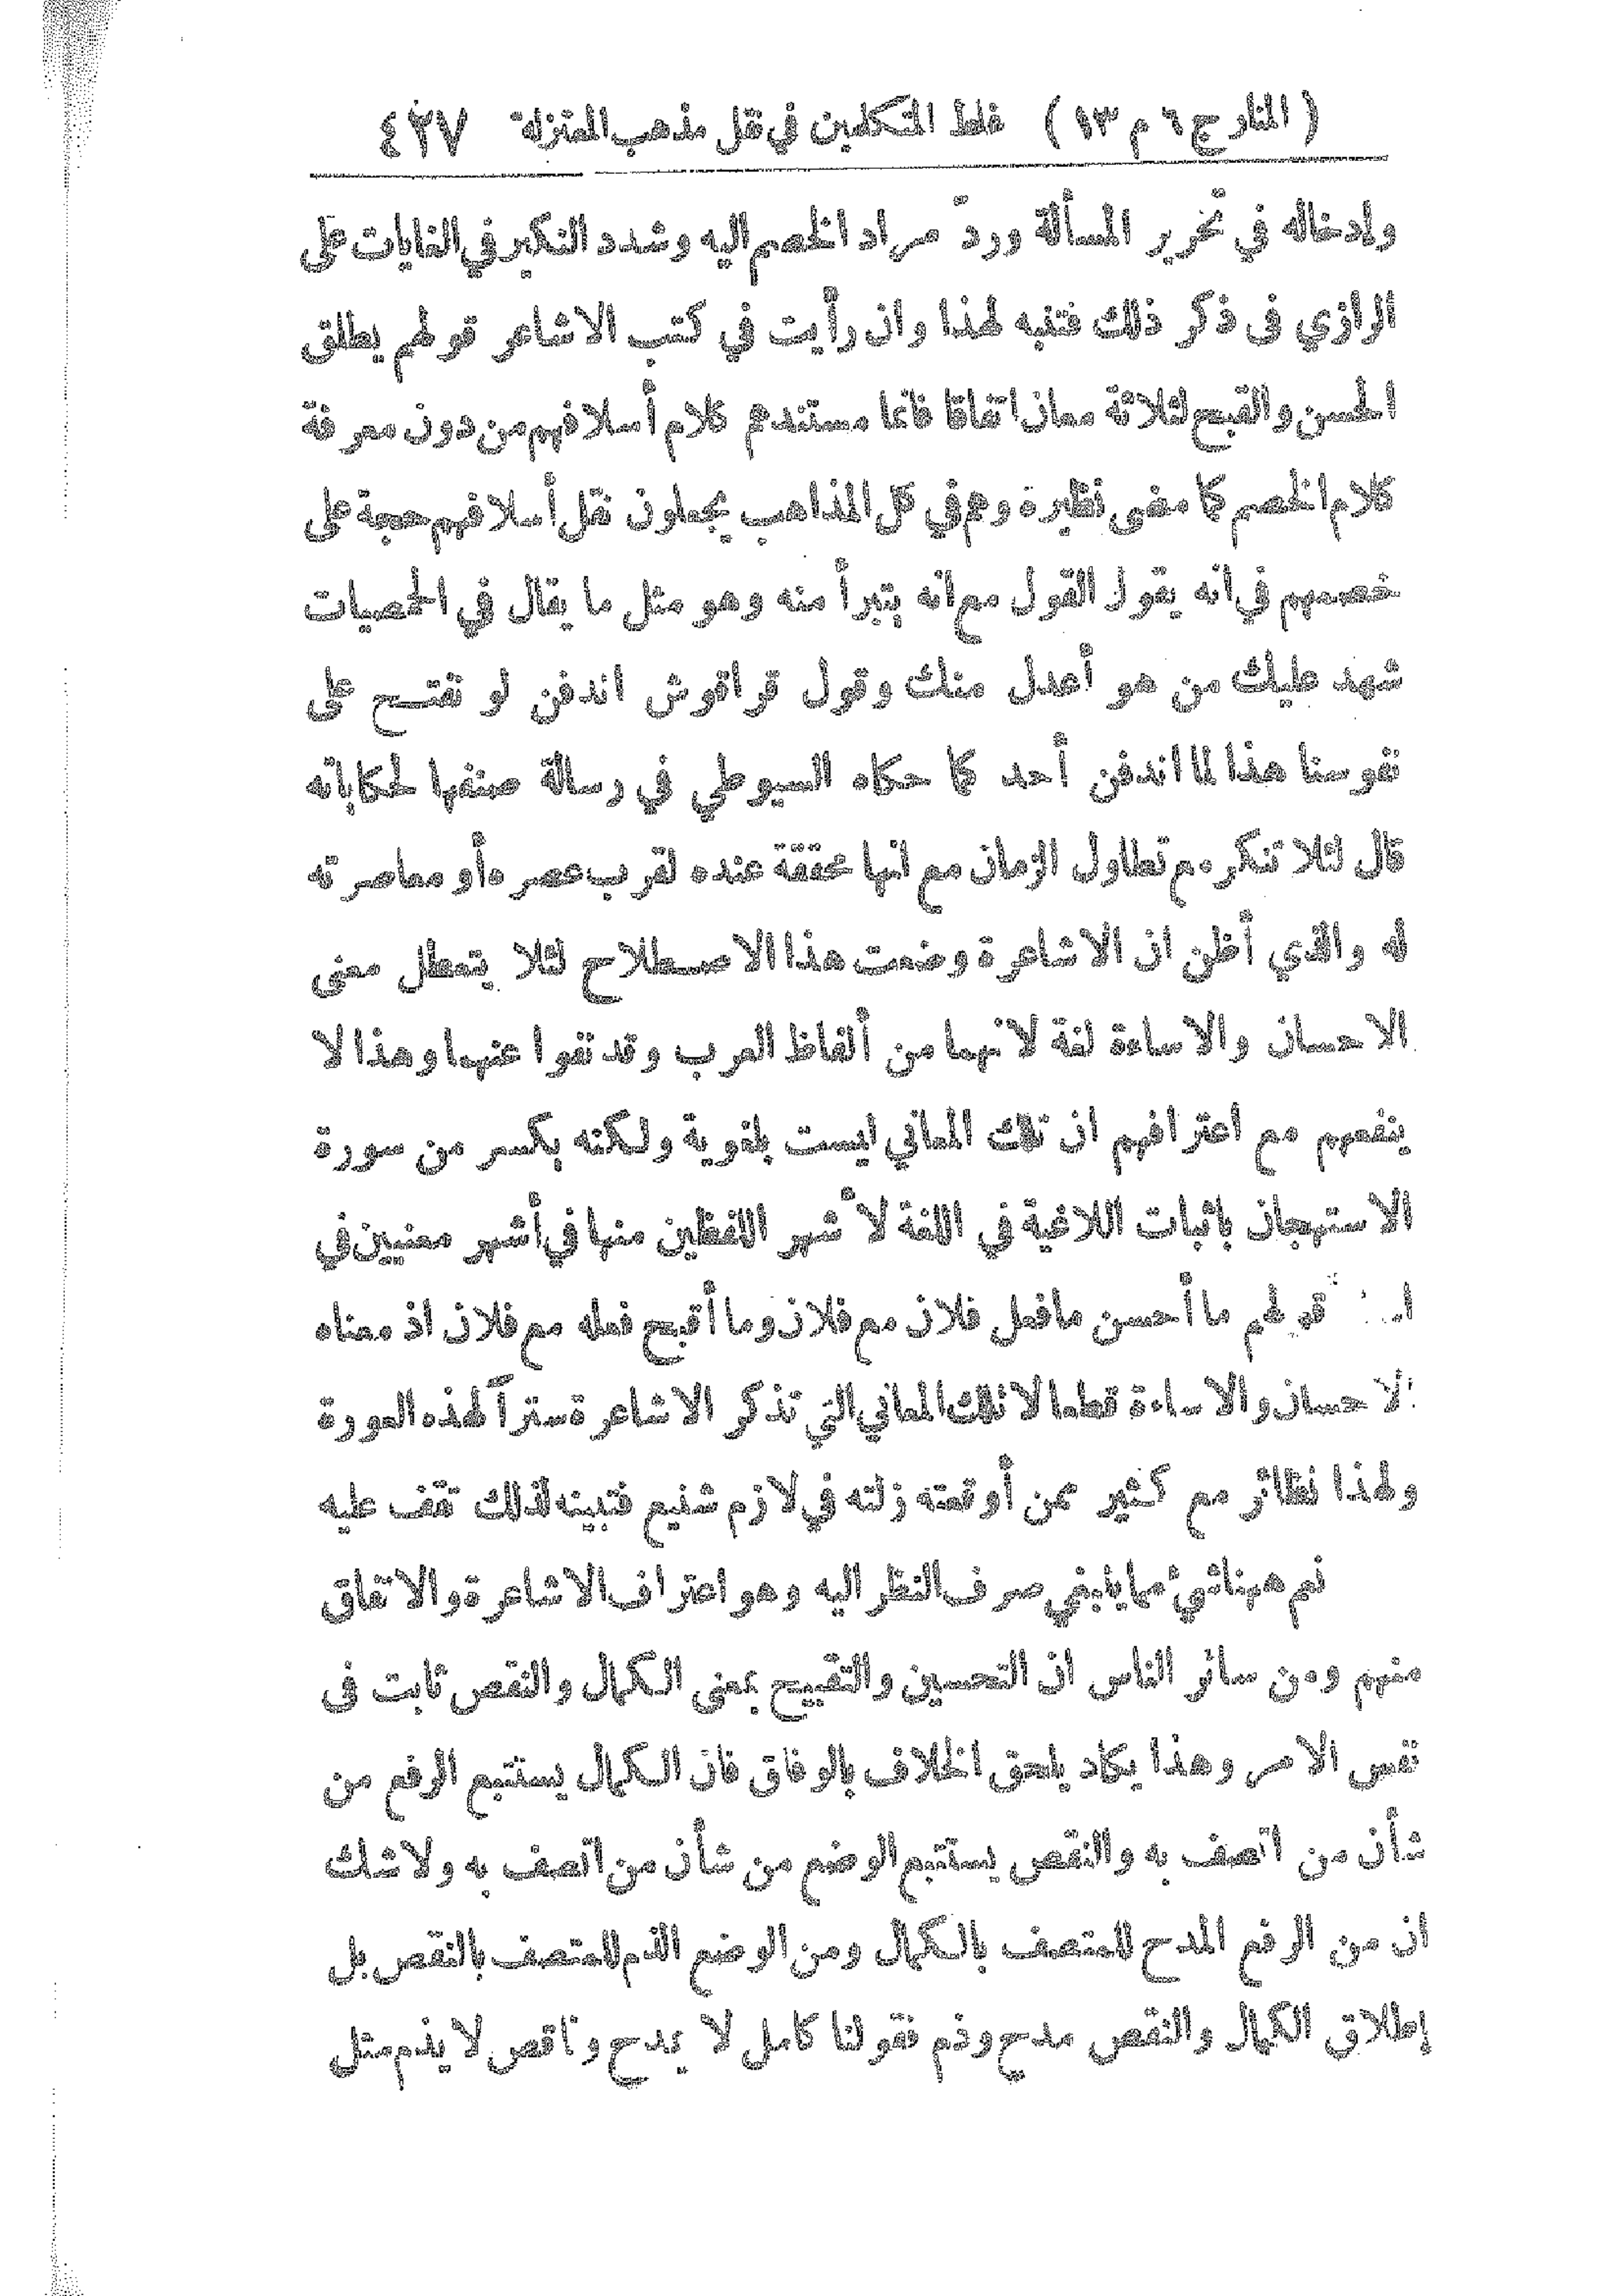 ( المنار ج ٦ م ١٣ ) غلط المتكلمين في نقل مذهب المعتزلة ٤٣٧
ولادخاله في تحرير المسألة وردّ مراد الخصم اليه وشدد النكير في الغايات على
الرازي فى ذكر ذلك فتنبه لهذا وان رأيت في كتب الاشاعر قولهم يطلق
الحسن والقبح لثلاثة معان اتفاقا فانما مستندهم كلام أسلافهم من دون معرفة
كلام الخصم كما مضى نظيره وهم في كل المذاهب يجعلون نقل أسلافهم حجة على
خصمهم في انه يقول القول مع انه يتبرأ منه وهو مثل ما يقال في الحصيات
شهد عليك من هو أعدل منك وقول قراقوش اندفن لو نفتح على
نفوسنا هذا لما اندفن أحد كما حكاه السيوطي في رسالة صنفها لحكاياته
قال لئلا تنكر مع تطاول الزمان مع انها محققة عنده لقرب عصره أو معاصرته
له والذي أظن ان الاشاعرة وضعت هذا الاصطلاح لئلا يتعطل معنى
الاحسان والاساءة لغة لانهما من ألفاظ العرب وقد نفوا عنهما وهذا لا
ينفعهم مع اعترافهم ان تلك المعاني ليست بلغوية ولكنه يكسر من سورة
الاستهجان باثبات اللاغية في اللغة لأشهر اللفظين منها في أشهر معنيين في
قولهم ما أحسن ما فعل فلان مع فلان وما أقبح فعله مع فلان اذ معناه
الاحسان والاساءة قطعا لا تلك المعاني التي تذكر الاشاعرة ستراً لهذه العورة
ولهذا نظائر مع كثير ممن أوقعته زلته في لازم شنيع فتبينه لذلك تقف عليه
نعم ههنا شيء مما ينبغي صرف النظر اليه وهو اعتراف الاشاعرة والاتفاق
منهم ومن سائر الناس ان التحسين والتقبيح بمعنى الكمال والنقص ثابت فى
نفس الامر وهذا يكاد يلحق الخلاف بالوفاق فان الكمال يستتبع الرفع من
شأن من اتصف به والنقص يستتبع الوضع من شأن من اتصف به ولا شك
ان من الرفع المدح للمتصف بالكمال ومن الوضع الذم للمتصف بالنقص بل
إطلاق الكمال والنقص مدح وذم فقولنا كامل لا يمدح وناقص لا يذم مثل